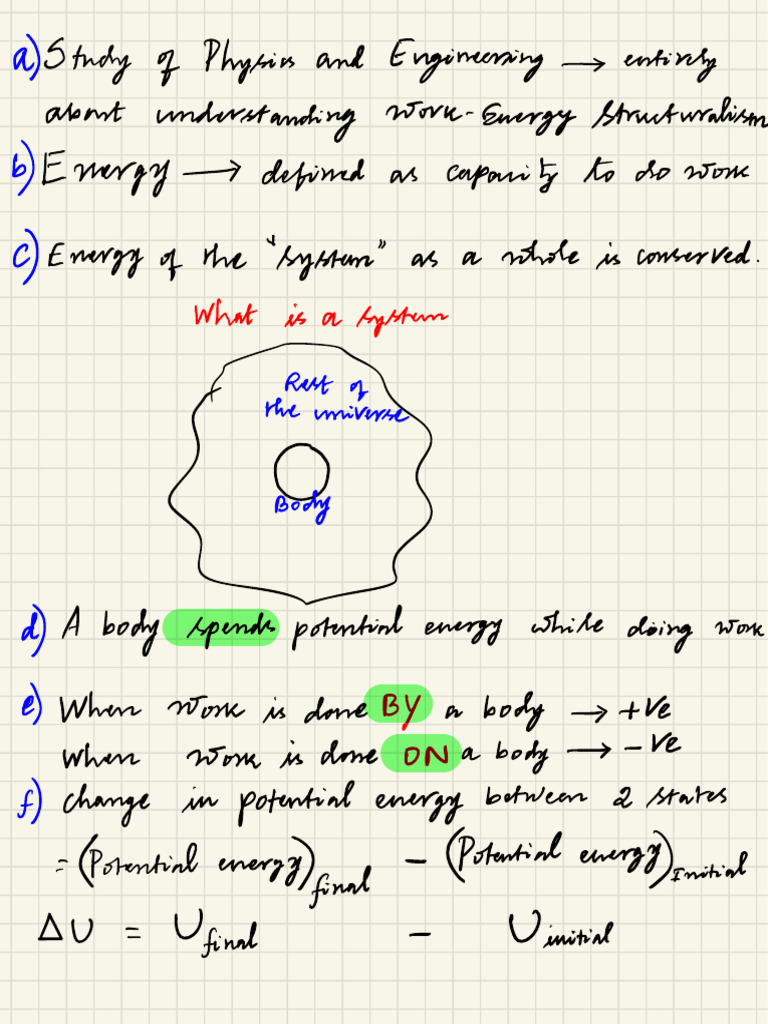 a) Study of Physics and Engineering → entirely
about understanding work-Energy Structuralism
b) Energy → defined as capacity to do work
c) Energy of the "system" as a whole is conserved.
What is a system
Rest of
the universe
Body
d) A body spends potential energy while doing work
e) When work is done BY a body → +ve
When work is done ON a body → -ve
f) change in potential energy between 2 states
= (Potential energy)final - (Potential energy)Initial
ΔU = Ufinal - Uinitial